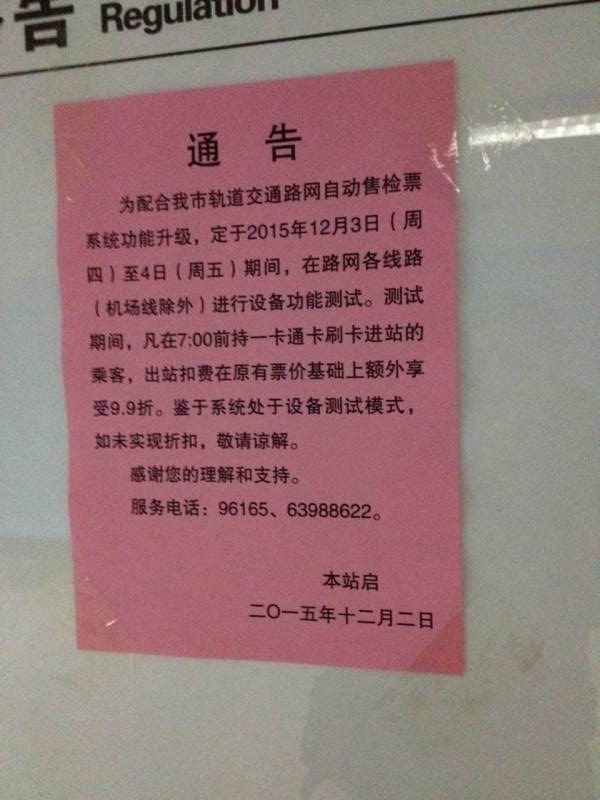 告 Regulation
通 告
为配合我市轨道交通路网自动售检票
系统功能升级，定于2015年12月3日（周
四）至4日（周五）期间，在路网各线路
（机场线除外）进行设备功能测试。测试
期间，凡在7:00前持一卡通卡刷卡进站的
乘客，出站扣费在原有票价基础上额外享
受9.9折。鉴于系统处于设备测试模式，
如未实现折扣，敬请谅解。
感谢您的理解和支持。
服务电话：96165、63988622。
本站启
二〇一五年十二月二日